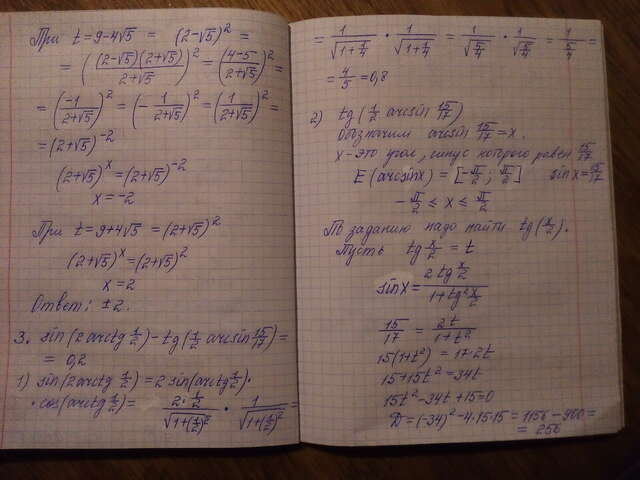 При t = 9-4√5 = (2-√5)² =
= ((2-√5)(2+√5)/(2+√5))² = ((4-5)/(2+√5))² =
= (-1/(2+√5))² = (-1/(2+√5))² = (1/(2+√5))² =
= (2+√5)⁻²
(2+√5)ˣ = (2+√5)⁻²
x = -2
При t = 9+4√5 = (2+√5)²
(2+√5)ˣ = (2+√5)²
x = 2
Ответ: ±2.
3. sin(2arctg 1/2) - tg(1/2 arcsin 15/17) =
= 0,2
1) sin(2arctg 1/2) = 2 sin(arctg 1/2)·
·cos(arctg 1/2) = 2·1/2/√(1+(1/2)²) · 1/√(1+(1/2)²) =
= 1/√(1+1/4) · 1/√(1+1/4) = 1/√(5/4) · 1/√(5/4) = 1/(5/4) =
= 4/5 = 0,8
2) tg(1/2 arcsin 15/17)
Обозначим arcsin 15/17 = x.
x - это угол, синус которого равен 15/17
E(arcsinx) = [-π/2; π/2] sinx = 15/17
-π/2 ≤ x ≤ π/2
По заданию надо найти tg(x/2).
Пусть tg x/2 = t
sinx = 2tg x/2 / (1+tg² x/2)
15/17 = 2t/(1+t²)
15(1+t²) = 17·2t
15+15t² = 34t
15t²-34t+15=0
D = (-34)²-4·15·15 = 1156-900 =
= 256